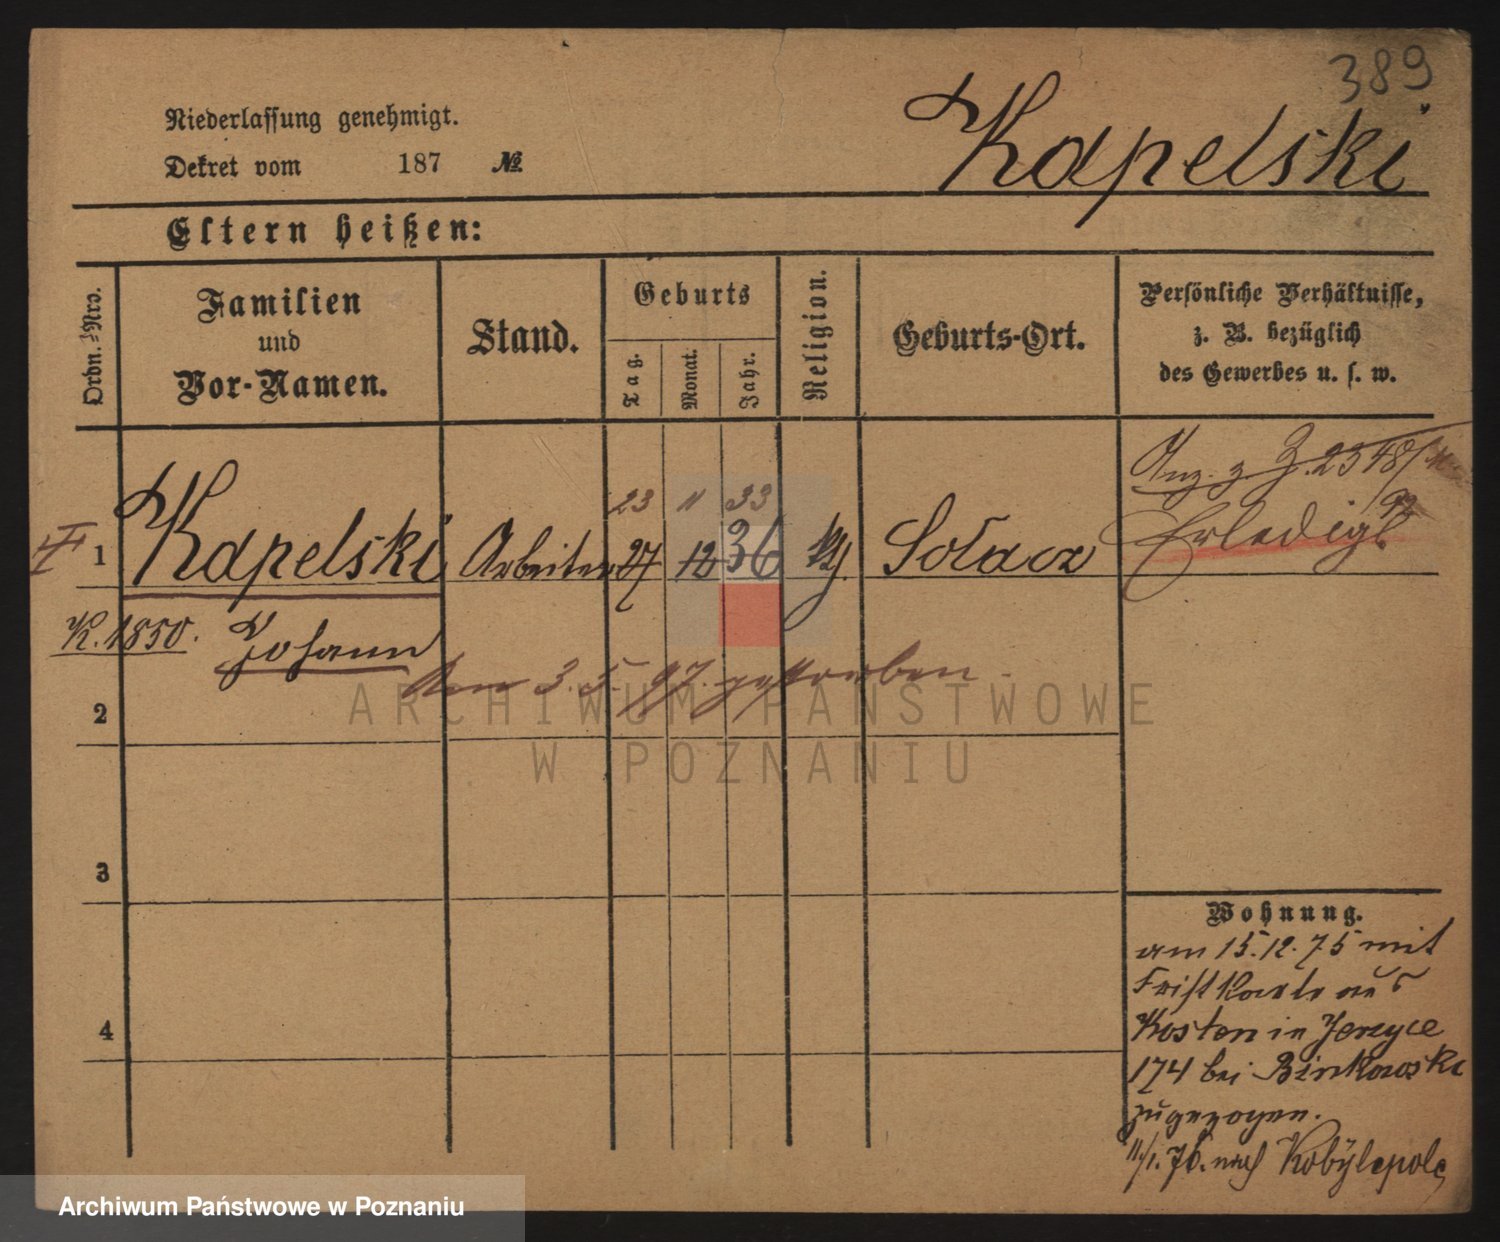 389
Niederlassung genehmigt.
Dekret vom 187 №
Kapelski
Eltern heißen:
Ordn.-Nro.
Familien
und
Vor-Namen.
Stand.
Geburts
Tag.
Monat.
Jahr.
Religion.
Geburts-Ort.
Persönliche Verhältnisse,
z. B. bezüglich
des Gewerbes u. s. w.
Anz. z. Z. 2348/
92
Erledigt
23 11 33
I 1 Kapelski Arbeiter 27 12 36 kth. Solacz
K. 1850. Johann
Am 3. 5. 97. gestorben.
2
3
4
Wohnung.
am 15.12.75 mit
Fristkarte aus
Kosten in Jerzyce
174 bei Binkowski
zugezogen.
11/1.76. nach Kobylepole
ARCHIWUM PAŃSTWOWE
W POZNANIU
Archiwum Państwowe w Poznaniu